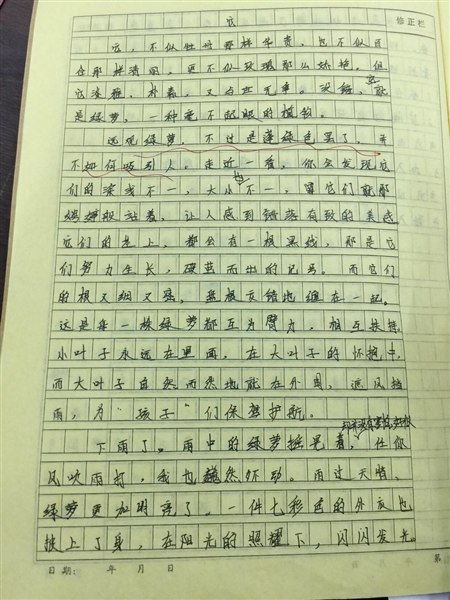 它
修正栏
它,不似牡丹那样华贵,也不似百
合那样清图,更不似玫瑰那么娇艳。但
它淡雅,朴素,又与世无争。没错,就
是绿萝,一种毫不起眼的植物。
远观绿萝,不过是蓬绿色罢了,并
不如何吸引人。走近一看,你会发现它
们的深浅不一,大小也不一,当它们就那
站着,让人感到错落有致的美感
它们的茎上,都会有一根黑线,那是它
们努力生长,破茧而出的记号。而它们
的根又细又强,盘根交错地缠在一起。
这是每一株绿萝都互为臂力,相互扶持。
小叶子永远在里面,在大叶子的怀抱中,
而大叶子自然而然地就在外围,遮风挡
雨,为“孩子”们保驾护航。
下雨了。雨中的绿萝摇晃着,任你
风吹雨打,我也巍然不动。雨过天晴,
绿萝更加明亮了。一件七彩色的外衣也
披上了身,在阳光的照耀下,闪闪发光。
日期: 年 月 日
第